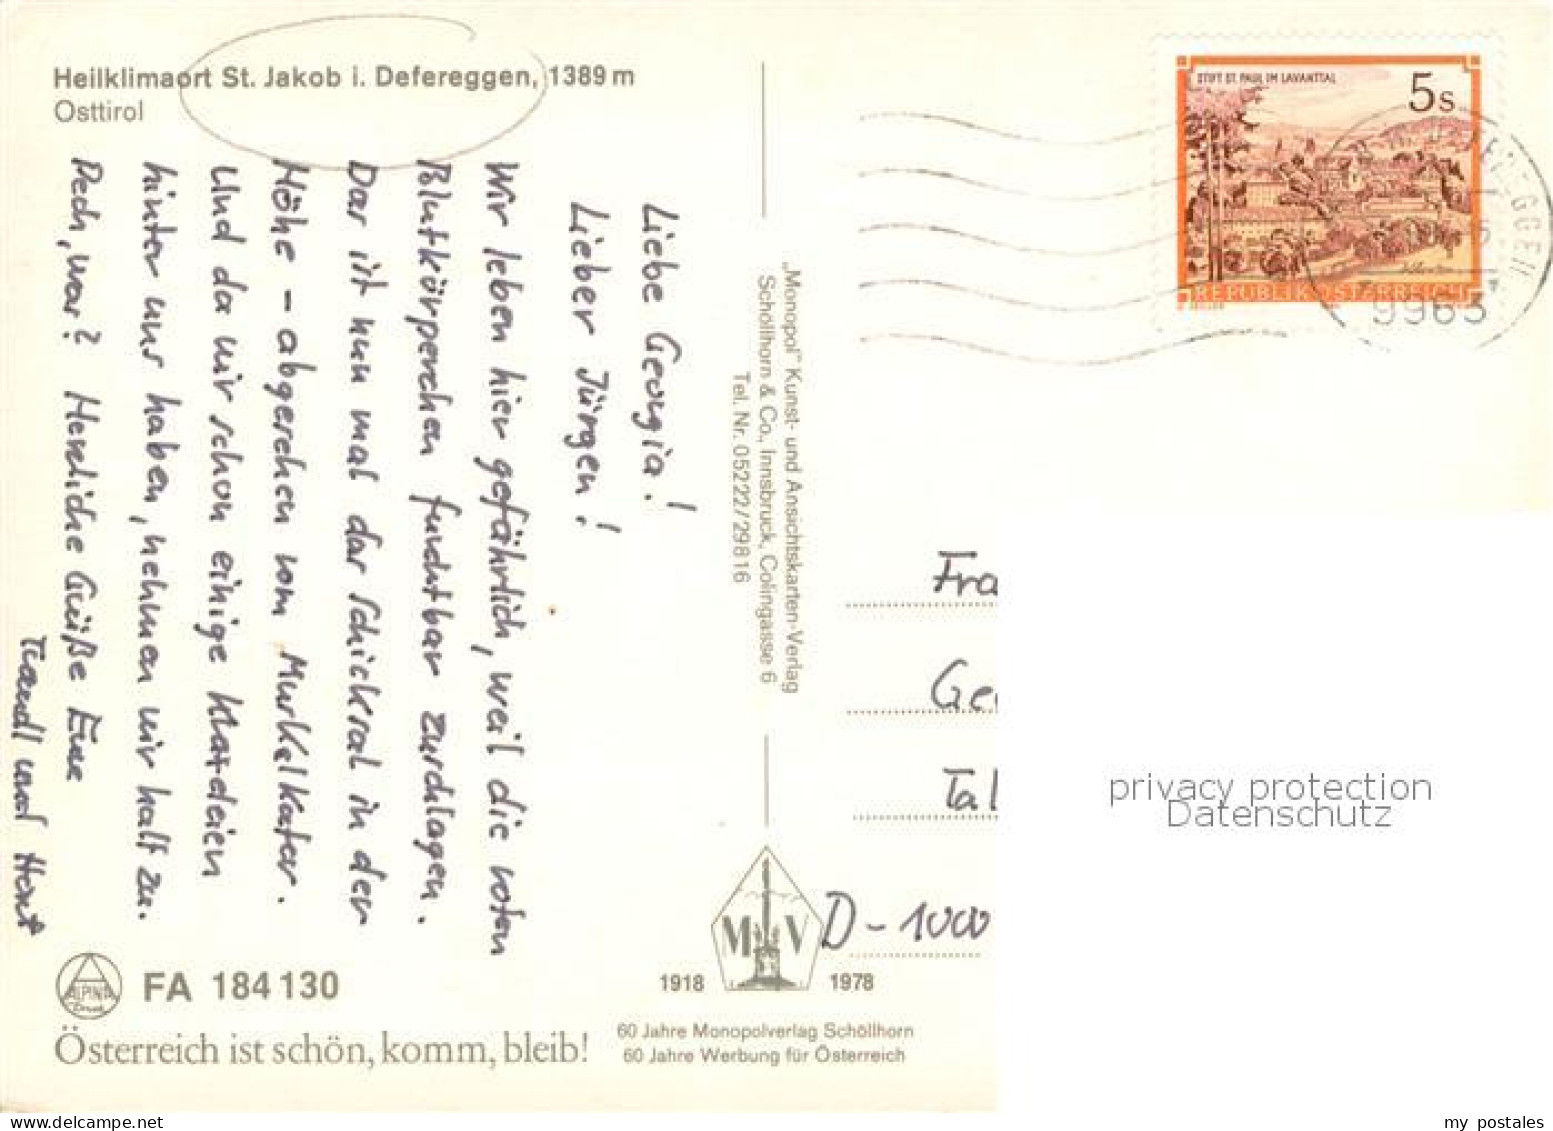 Heilklimaort St. Jakob i. Defereggen, 1389 m
Osttirol
Liebe Georgia!
Lieber Jürgen!
Wir leben hier gefährlich, weil die roten
Blutkörperchen furchtbar zurchlagen.
Das ist nun mal das Schicksal in der
Höhe – abgesehen vom Muskelkater.
Und da wir schon einige
hinter uns haben, nehmen wir halt zu.
Pech, was? Herzliche Grüße Eure
Traudl und Horst
„Monopol" Kunst- und Ansichtskarten-Verlag
Schöllhorn & Co., Innsbruck, Colingasse 6
Tel. Nr. 05222/29816
STIFT ST. PAUL IM LAVANTTAL
5 S
REPUBLIK ÖSTERREICH
9963
Fra
Geo
Tal
D - 1000
privacy protection
Datenschutz
M V
1918 1978
60 Jahre Monopolverlag Schöllhorn
60 Jahre Werbung für Österreich
ALPINA
Druck
FA 184 130
Österreich ist schön, komm, bleib!
my postales